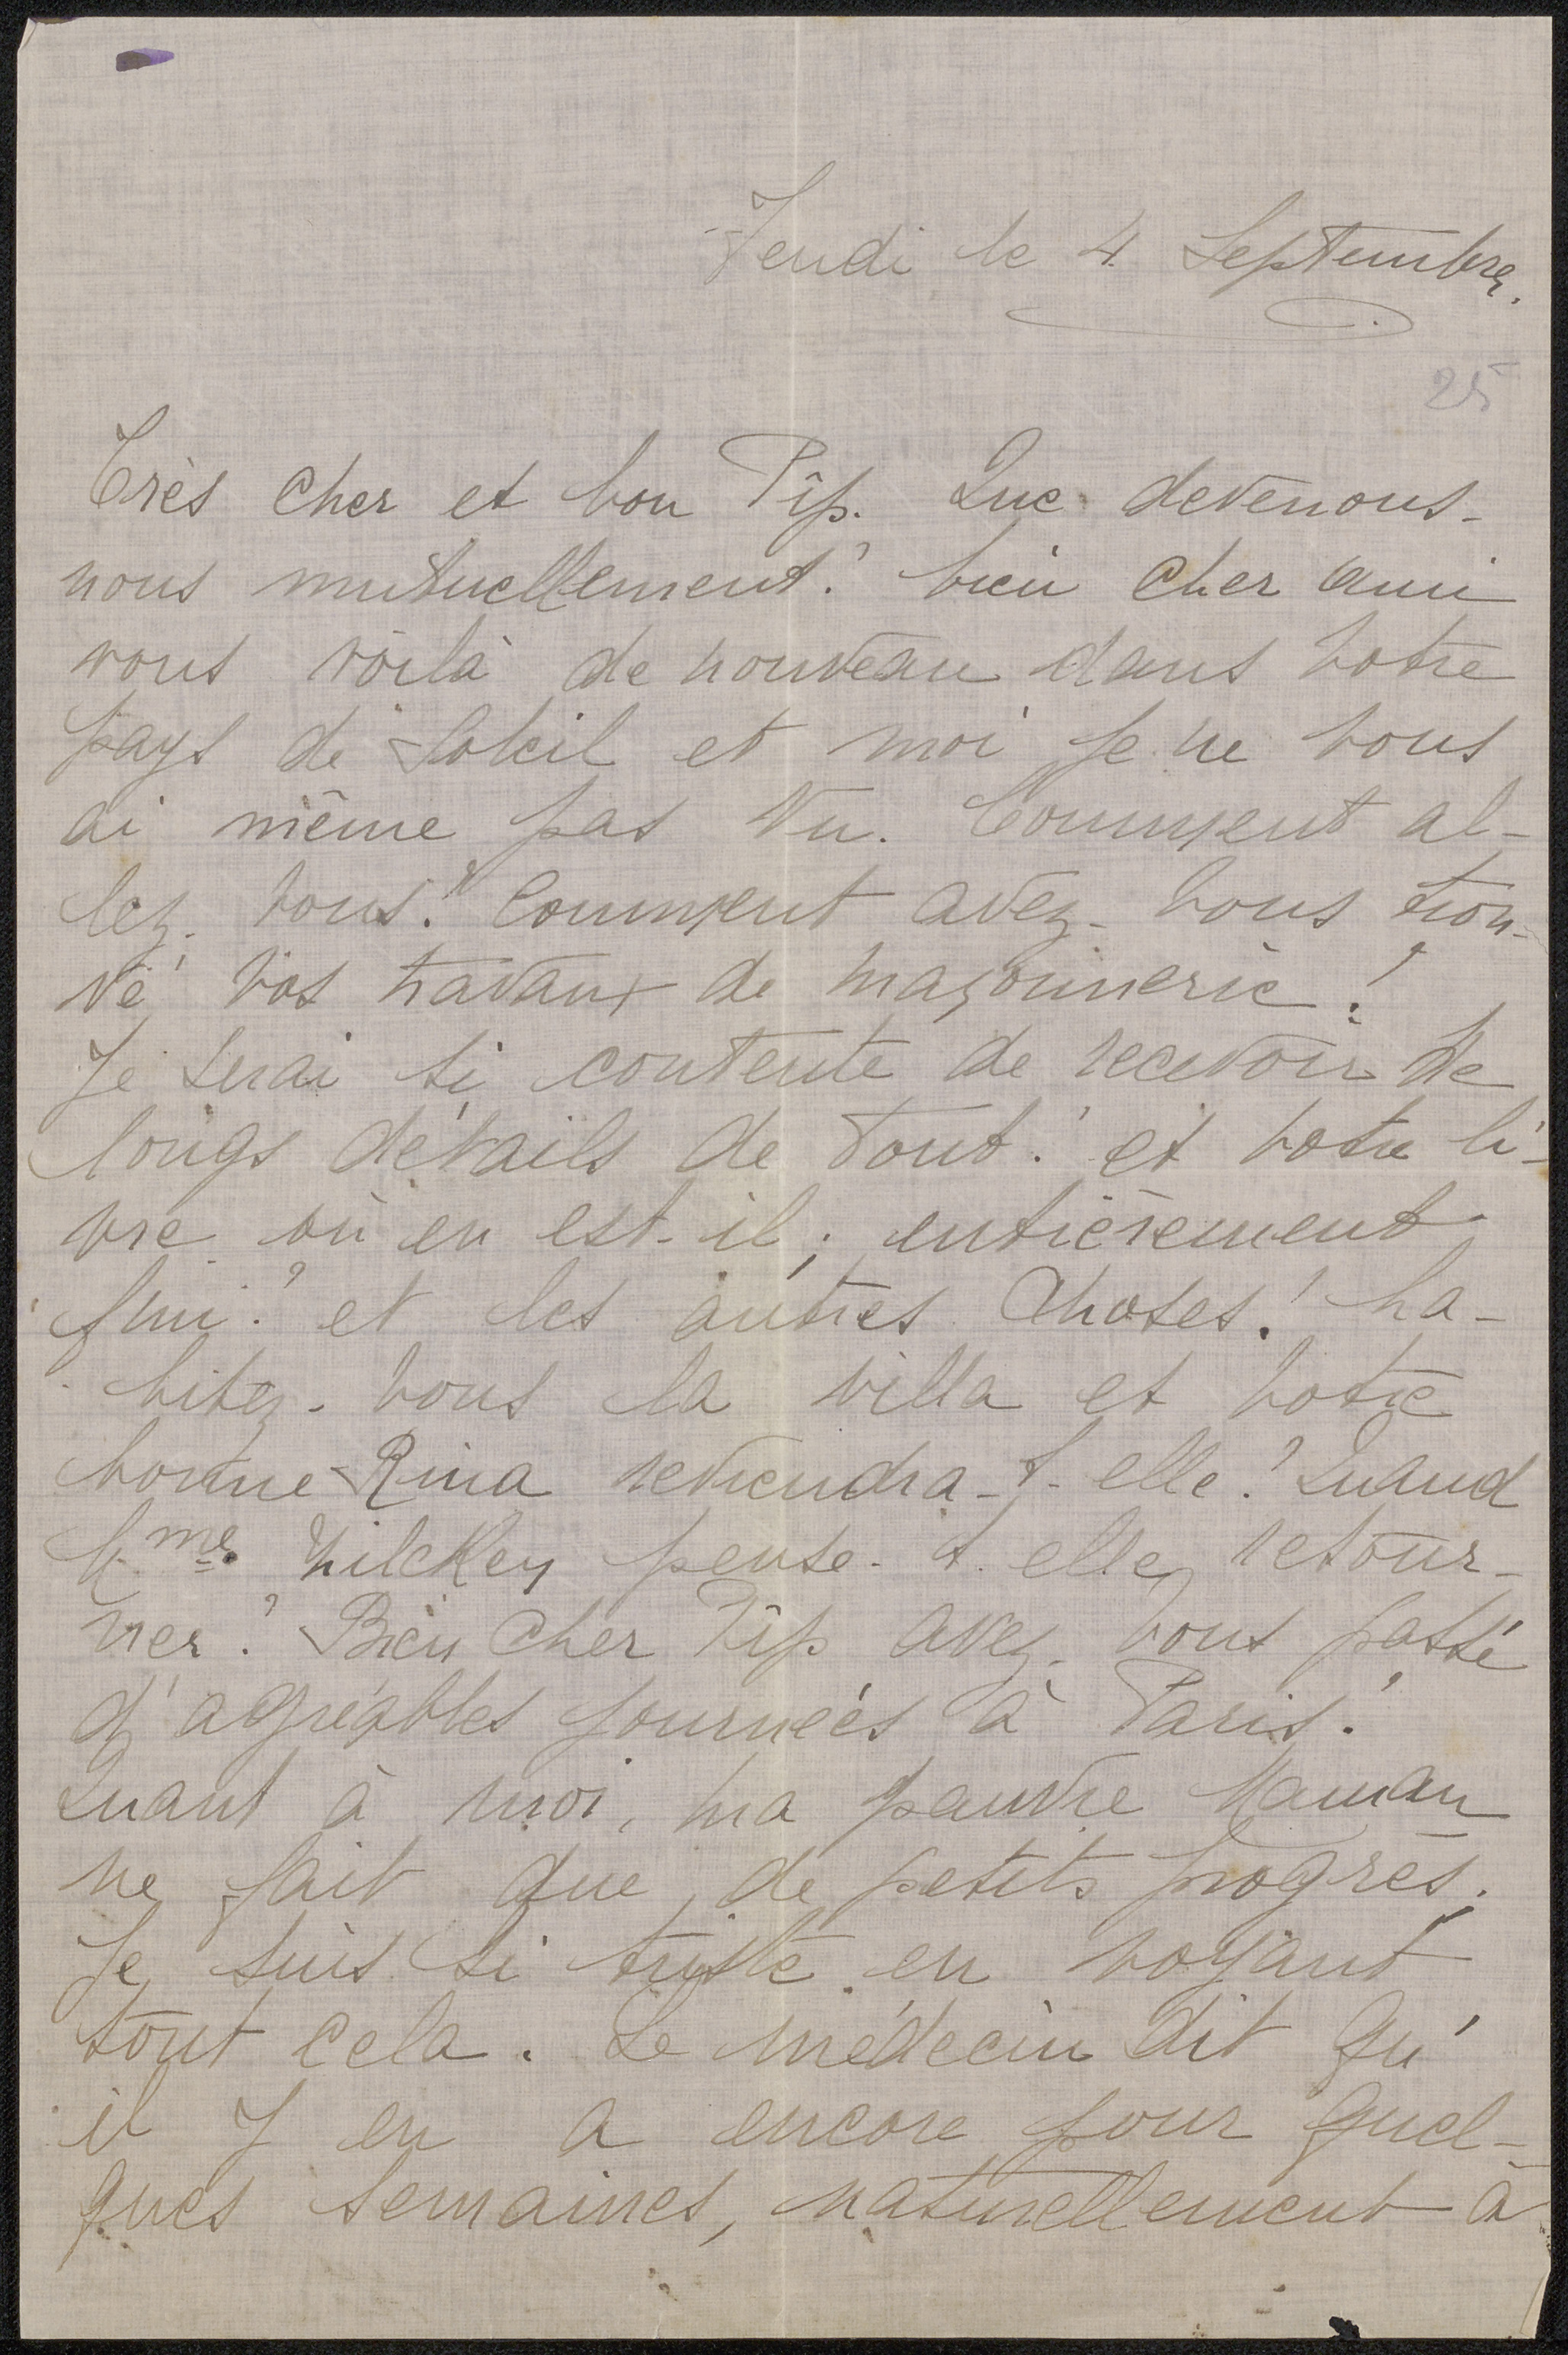 Jeudi le 4 Septembre.
25
Très cher et bon Pîp. Que devenons-
nous mutuellement? bien cher ami
vous voilà de nouveau dans votre
pays de Soleil et moi je ne vous
ai même pas vu. Comment al-
lez-vous? Comment avez-vous trou-
vé vos travaux de maçonnerie?
Je serai si contente de recevoir de
longs détails de tout! et votre li-
vre où en est-il; entièrement
fini? et les autres choses! ha-
bitez-vous la villa et votre
bonne Rina reviendra-t-elle? Quand
Mme Zilcken pense-t-elle retour-
ner? Bien cher Pîp avez-vous passé
d'agréables journées à Paris?
Quant à moi, ma pauvre Maman
ne fait que de petits progrès.
Je suis si triste en voyant
tout cela. Le médecin dit qu'
il y en a encore pour quel-
ques semaines, naturellement à